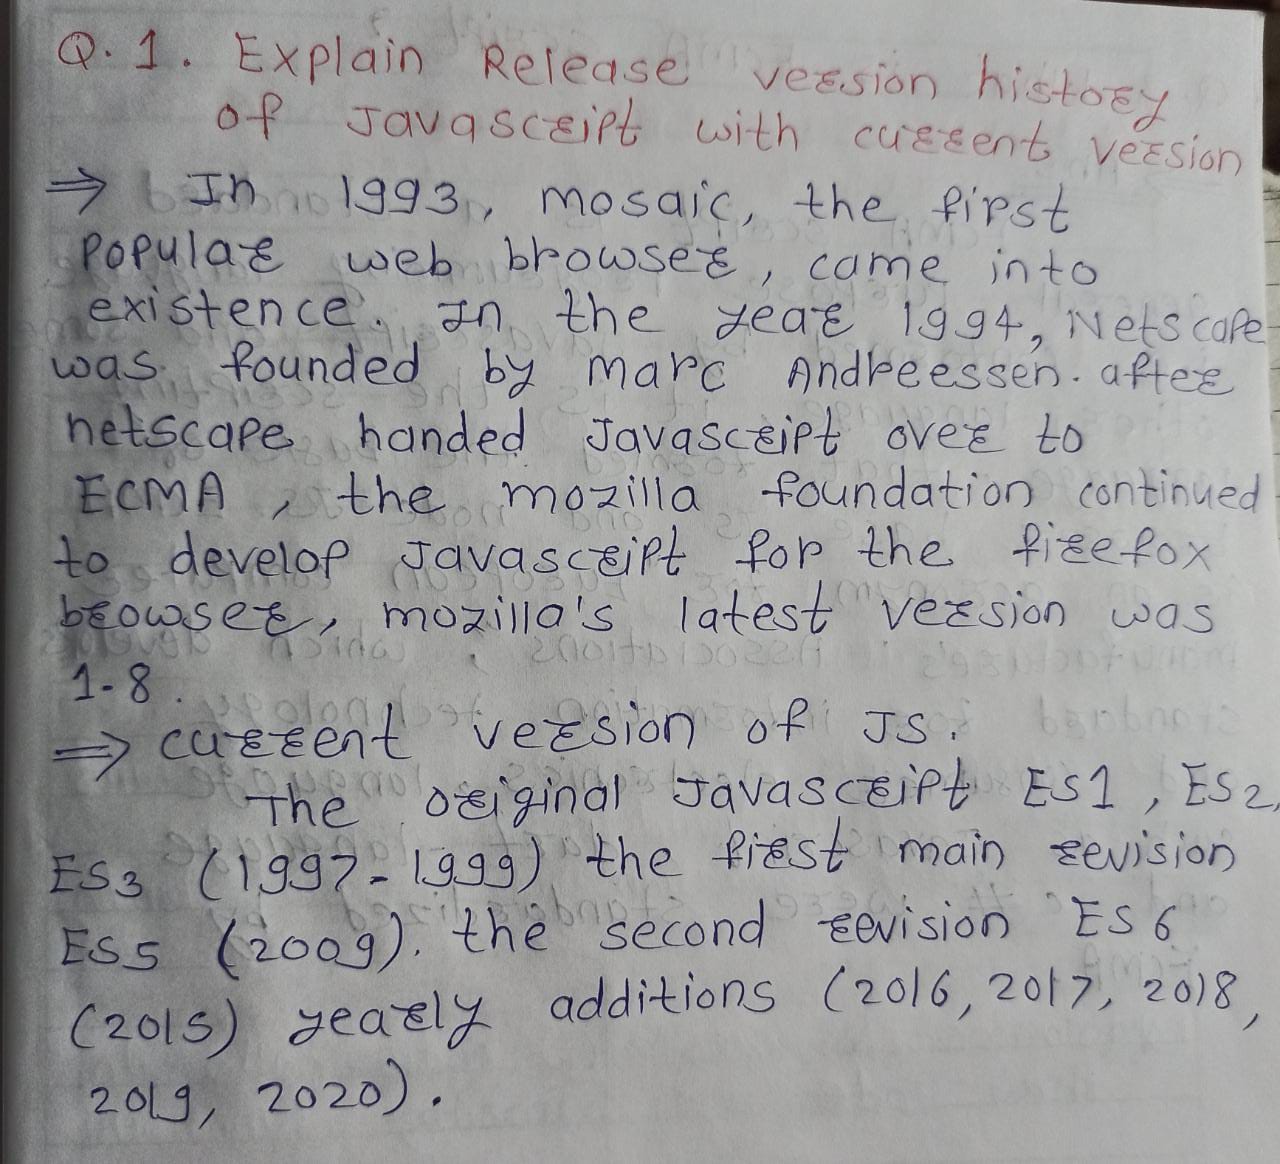 Q. 1. Explain Release version history
of Javascript with current version
⇒ In 1993, mosaic, the first
Popular web browser, came into
existence. In the year 1994, Netscape
was founded by Marc Andreessen. after
netscape handed Javascript over to
ECMA, the mozilla foundation continued
to develop Javascript for the firefox
browser, mozilla's latest version was
1-8.
⇒ current version of JS.
The original Javascript ES1, ES2,
ES3 (1997-1999) the first main revision
ES5 (2009). the second revision ES6
(2015) yearly additions (2016, 2017, 2018,
2019, 2020).